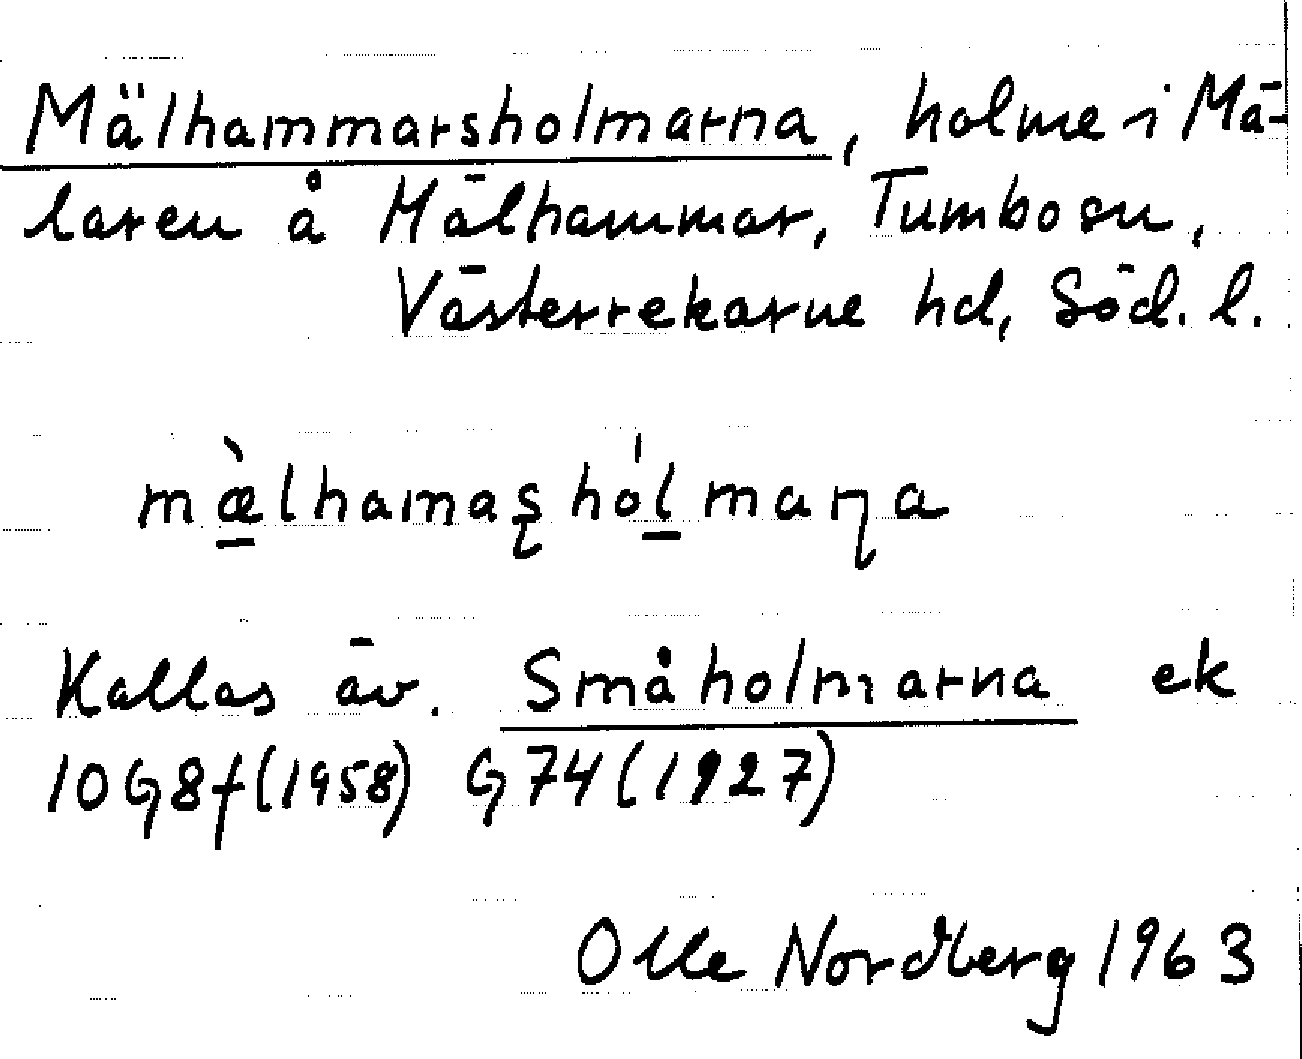 Mälhammarsholmarna, holme i Mä-
laren å Mälhammar, Tumbo sn,
Västerrekarne hd, Söd. l.
mæ̀lhamaʂhólmaɳa
Kallas äv. Småholmarna ek
10G8f(1958) G74(1927)
Olle Nordberg 1963